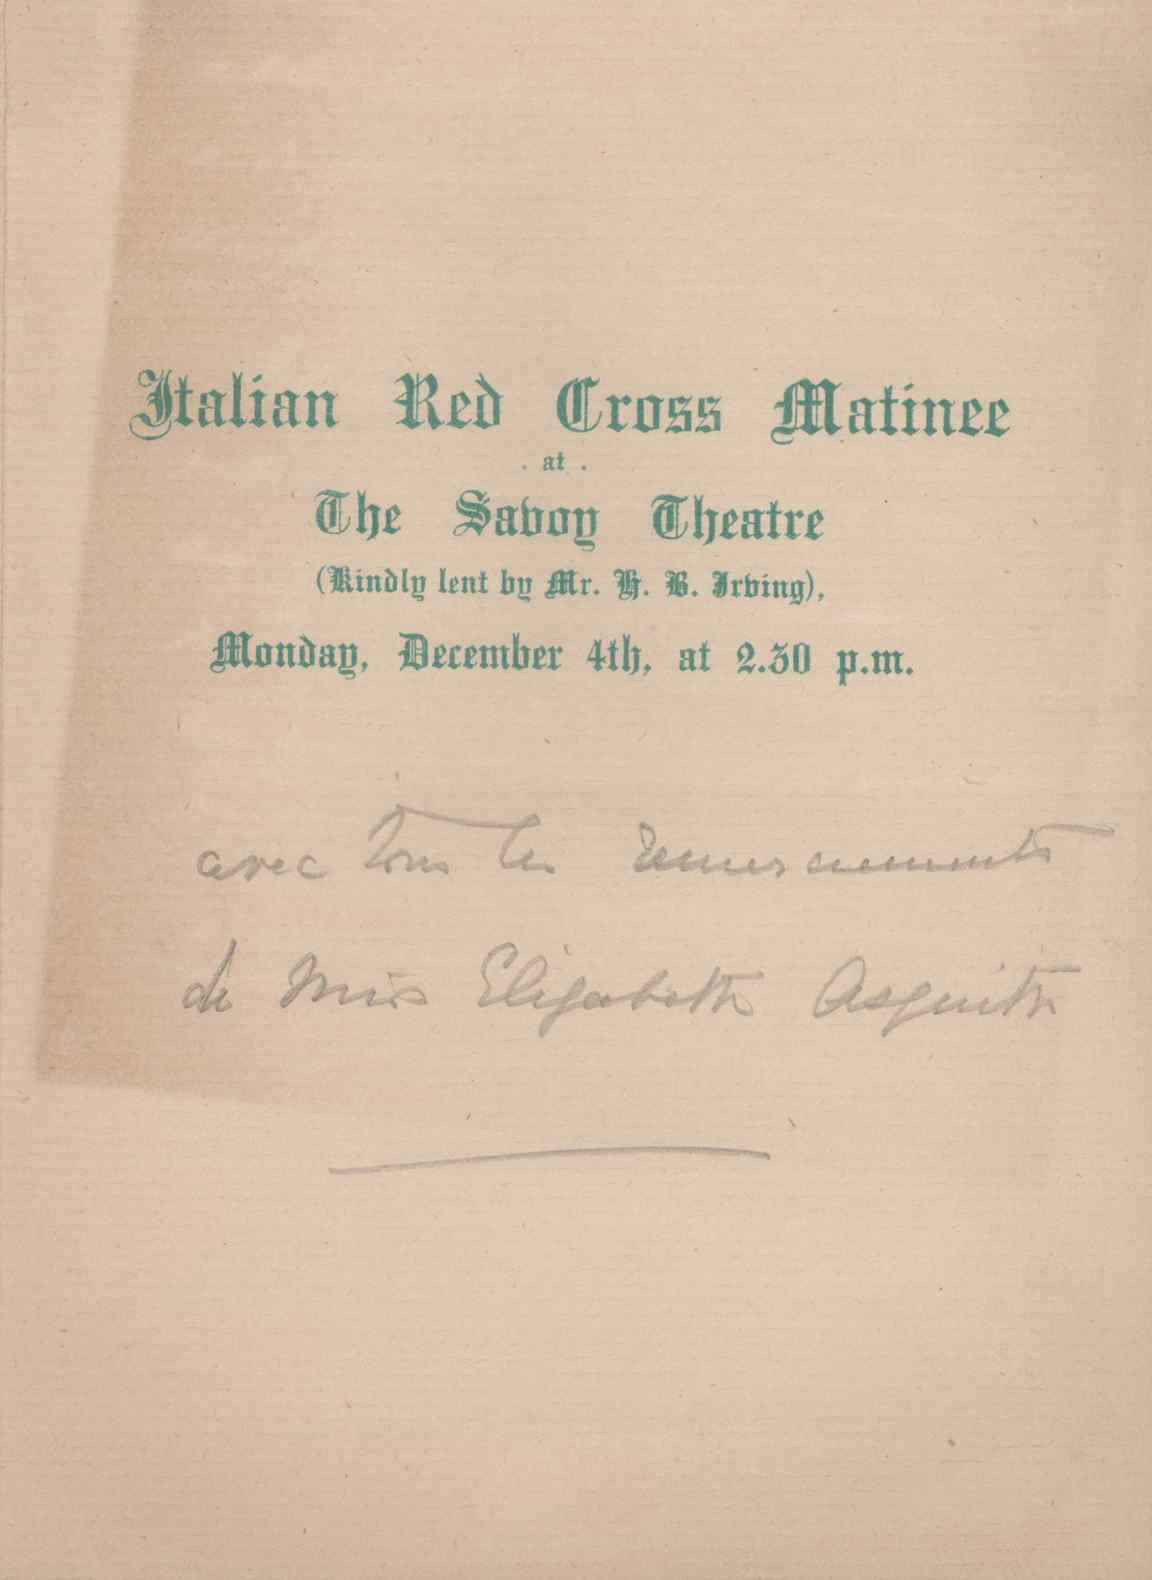 Italian Red Cross Matinee
. at .
The Savoy Theatre
(Kindly lent by Mr. H. B. Irving),
Monday, December 4th, at 2.30 p.m.
avec tous les remerciements
de Miss Elizabeth Asquith